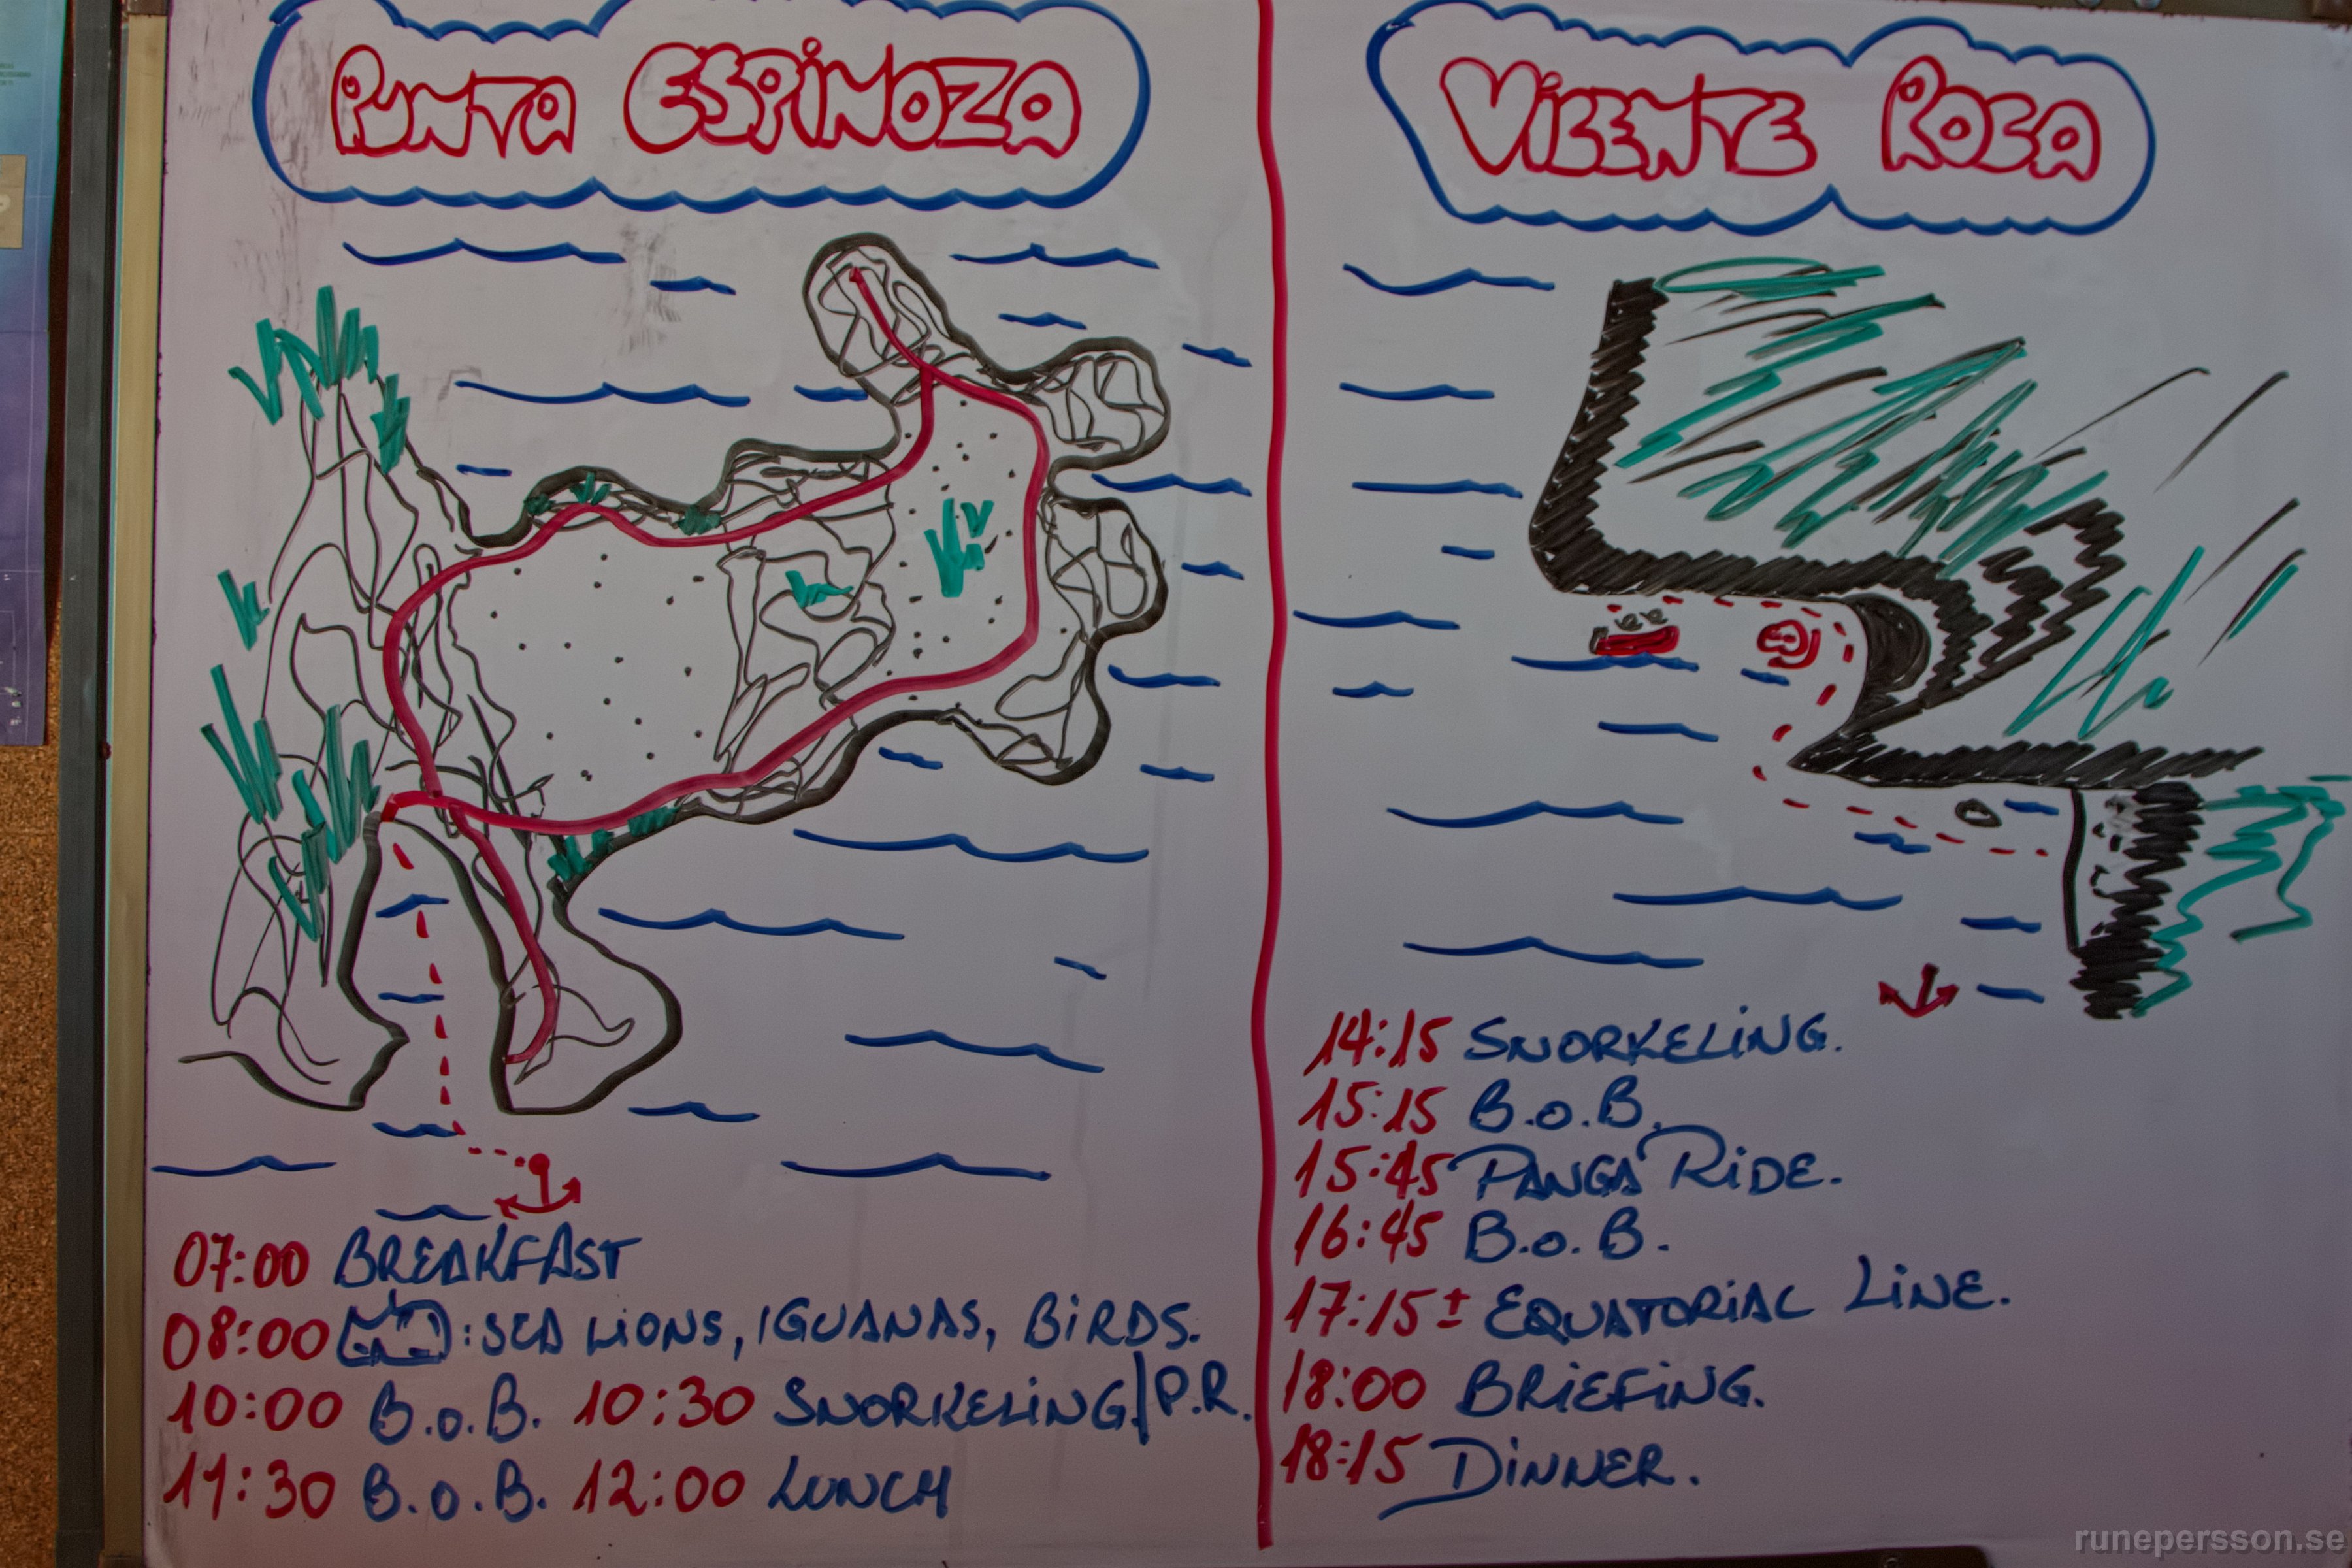 PUNTA ESPINOZA
07:00 BREAKFAST
08:00 : SEA LIONS, IGUANAS, BIRDS.
10:00 B.O.B. 10:30 SNORKELING/P.R.
11:30 B.O.B. 12:00 LUNCH
VICENTE ROCA
14:15 SNORKELING.
15:15 B.O.B.
15:45 PANGA RIDE.
16:45 B.O.B.
17:15± EQUATORIAL LINE.
18:00 BRIEFING.
18:15 DINNER.
runepersson.se